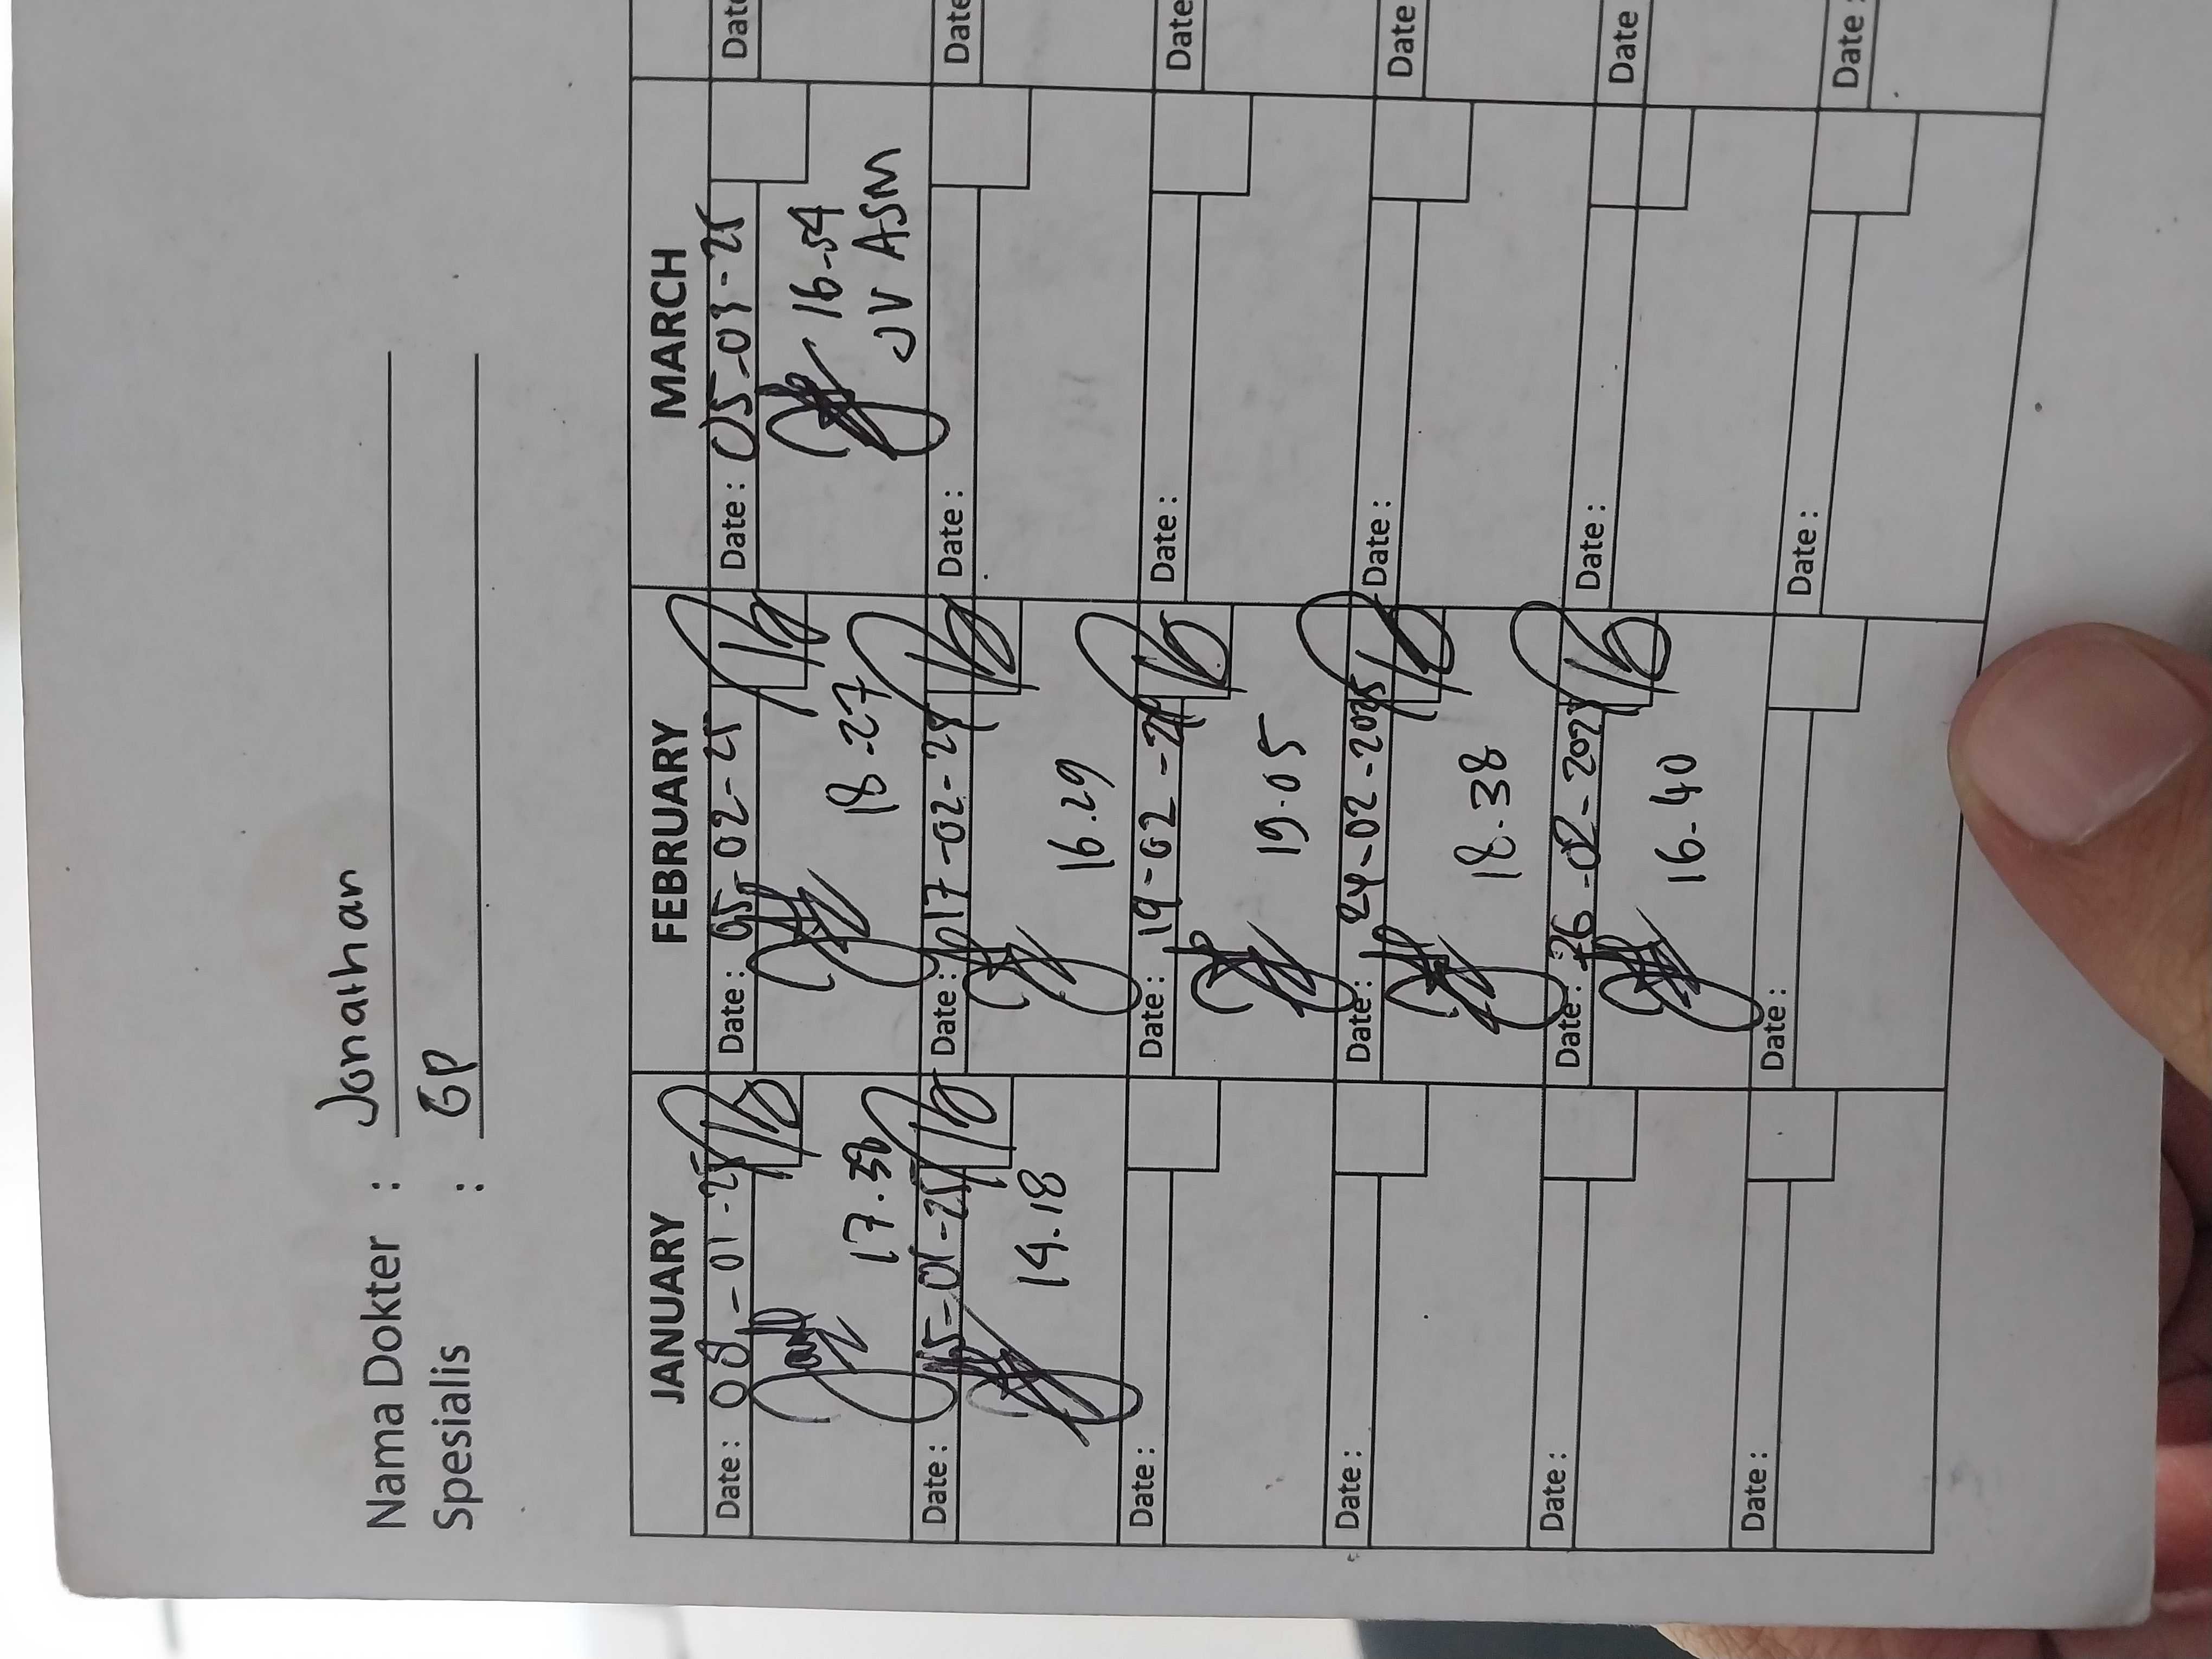 Nama Dokter : Jonathan
Spesialis : GP
JANUARY FEBRUARY MARCH
Date : 08-01-25 Date : 05-02-25 Date : 05-03-25 Date
18-27 16-54
17.58 JV ASM
Date : 15-01-25 Date : 17-02-25 Date : Date
14.18 16.29
Date : Date : 19-02-25 Date : Date
19.05
Date : Date : 24-02-2025 Date : Date
18.38
Date : Date : 26-02-2025 Date : Date
16-40
Date : Date : Date : Date :